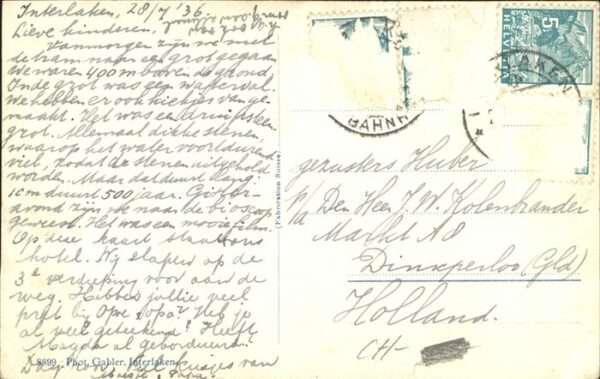 Interlaken, 28/7 '36.
Lieve kinderen,
Vanmorgen zijn we met
de tram naar een grot gegaan
We waren 400 m boven de grond
In de grot was een waterval.
We hebben er ook kiekjes van ge-
maakt. Het was een druipsteen
grot. Allemaal dikke stenen,
waarop het water voortdurend
viel, zodat de stenen uitgehold
worden. Maar dat duurt lang:
1 cm duurt 500 jaar. Gister-
avond zijn we naar de bioscoop
geweest. Het was een mooie film.
Op deze kaart staat ons
hotel. Wij slapen op de
3e verdieping voor aan de
weg. Hebben jullie veel
pret bij Opa? Heb je
al veel getekend? Heeft
Magda al geborduurd?
Dag hoor, veel kusjes van
8899 Phot. Gabler, Interlaken
(Fabrication Suisse)
5
HELVETIA
LAKEN
BAHNH
gezusters Huber
p/a Den Heer J. W. Kolenbrander
Markt A8
Dinxperloo (Gld)
Holland.
CH-